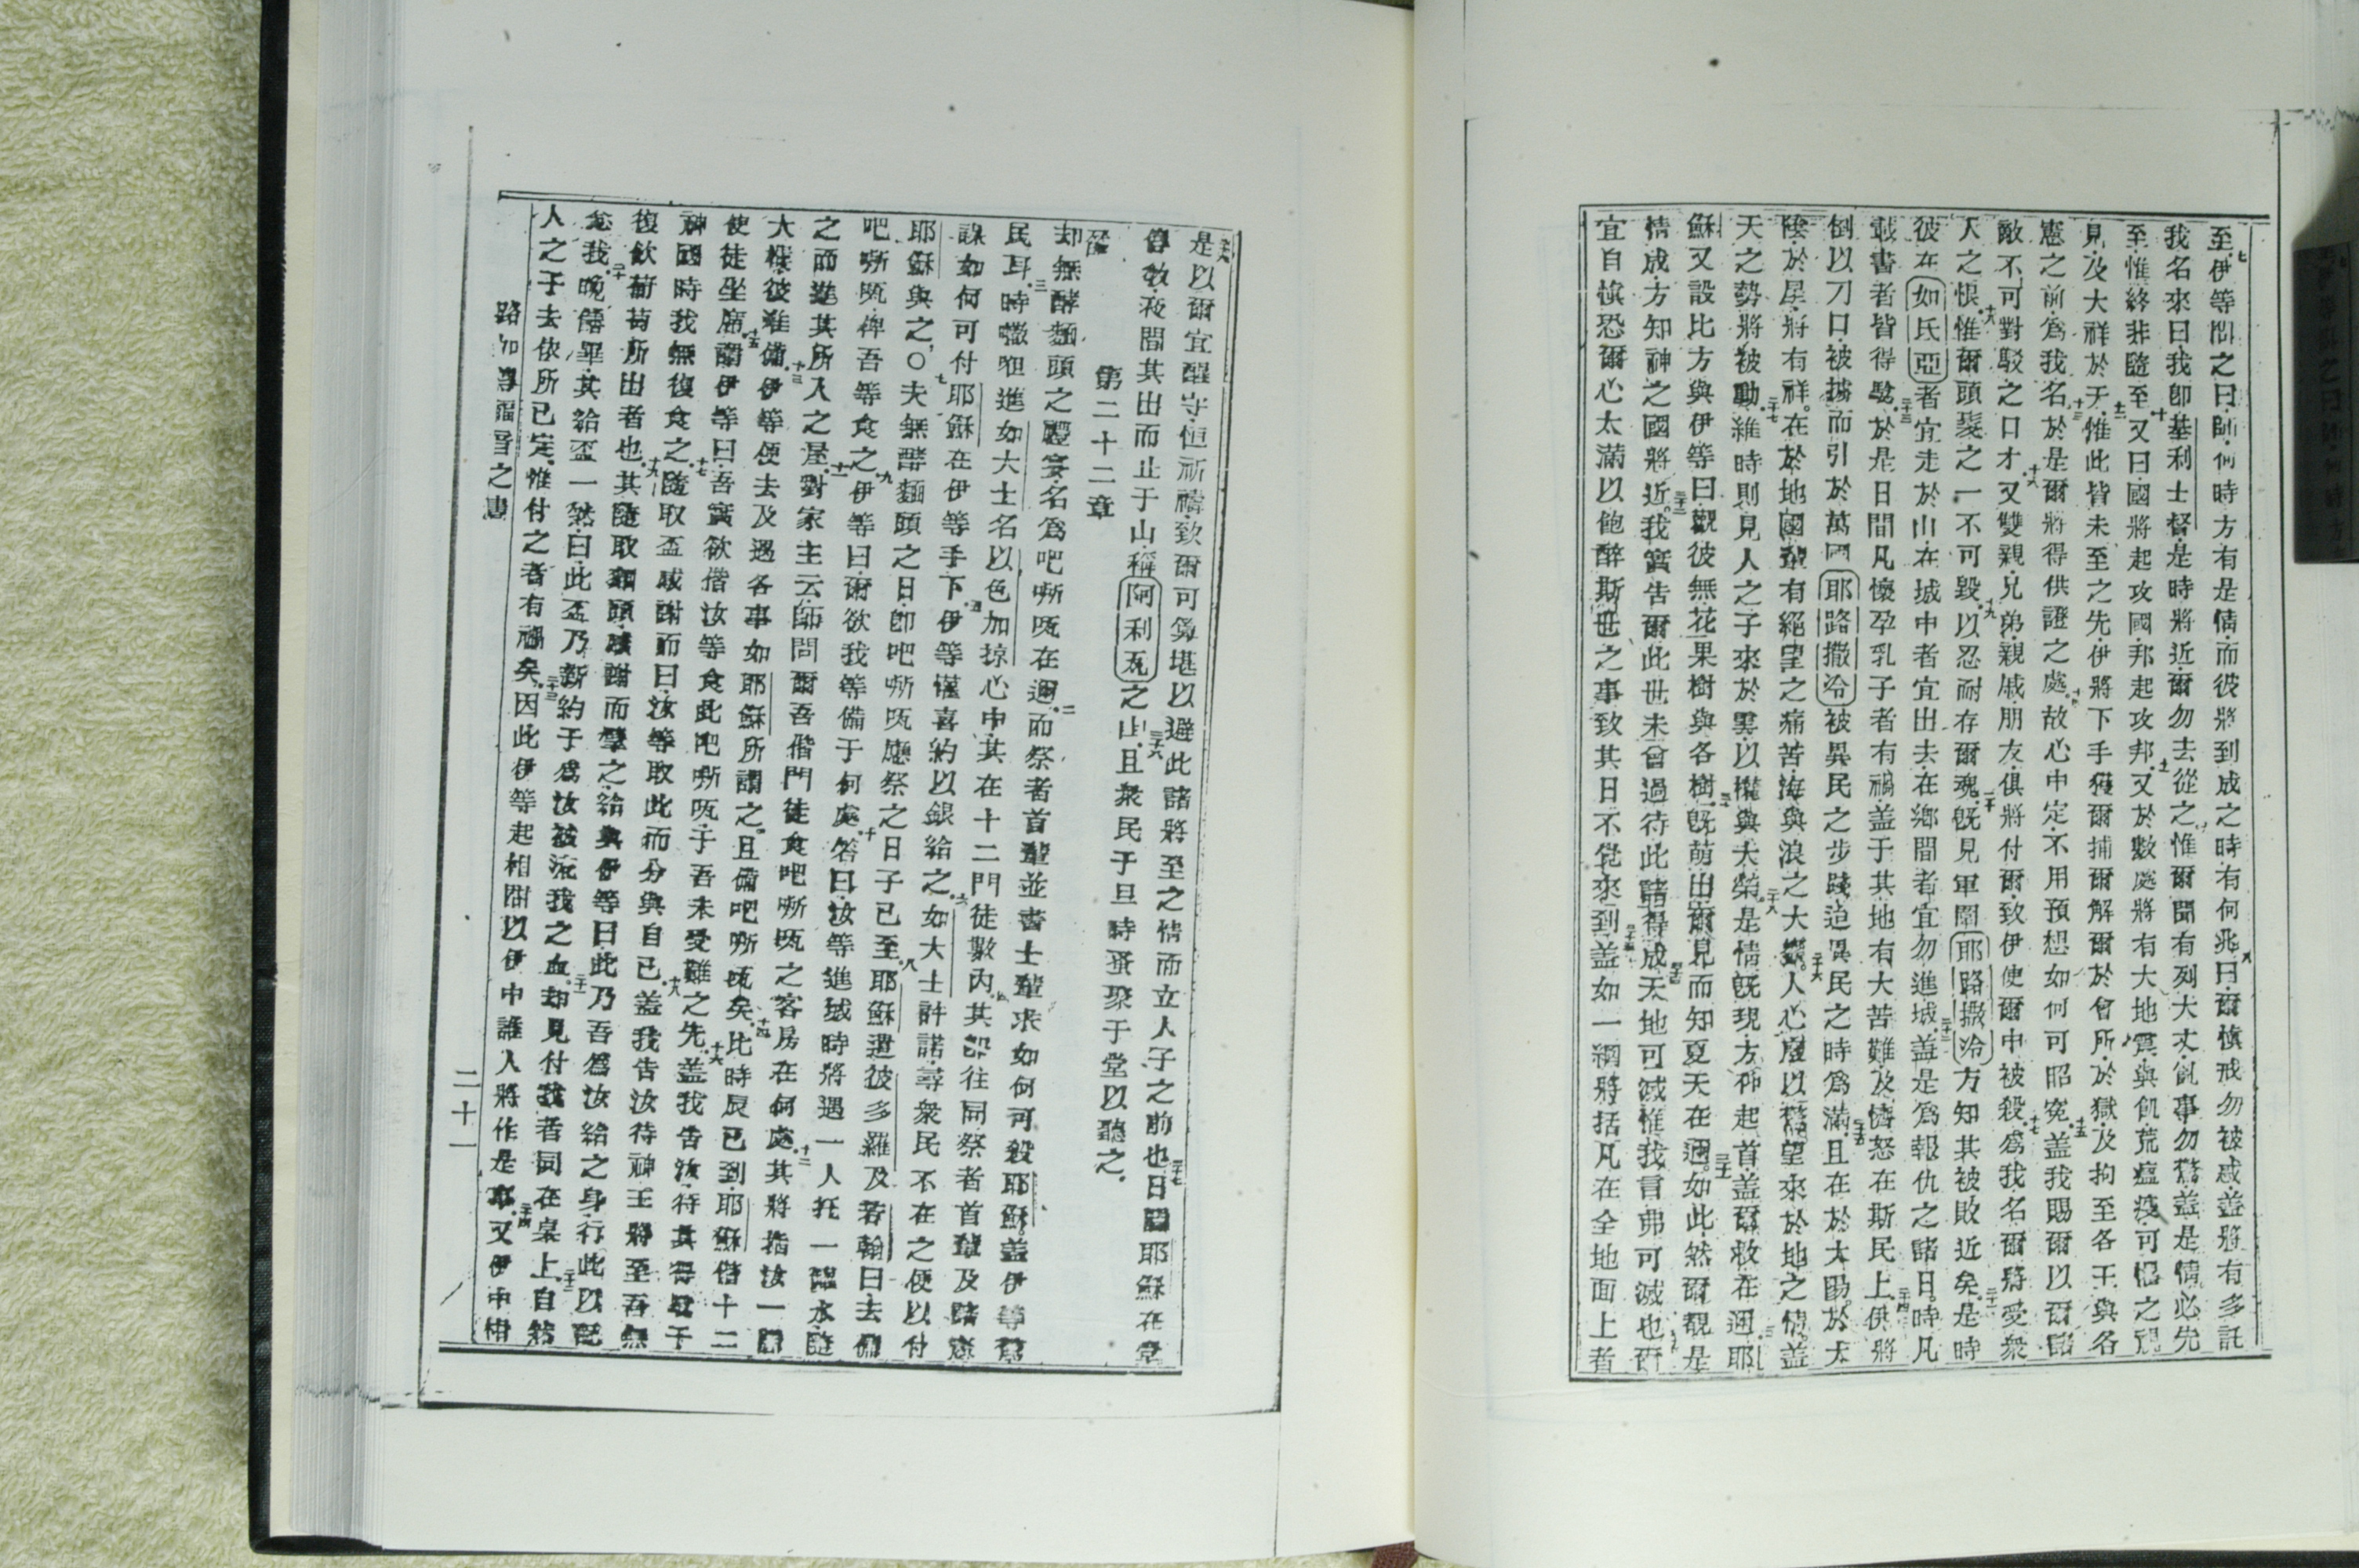 至伊等問之曰師何時方有是情而彼將到成之時有何兆曰爾慎戒勿被惑蓋將有多託
我名來曰我卽基利士督是時將近爾勿去從之惟爾聞有列大丈亂事勿驚蓋是情必先
至惟終非隨至又曰國將起攻國邦起攻邦又於數處將有大地震與飢荒瘟疫可懼之
見及大祥於天惟此皆未至之先伊將下手獲爾捕爾解爾於會所於獄及拘至各王與各
憲之前爲我名於是爾將得供證之處故心中定不用預想如何可昭冤蓋我賜爾以
敵不可對駁之口才又雙親兄弟親戚朋友俱將付爾致伊使爾中被殺爲我名爾將受衆
人之恨惟爾頭髮之一不可毀以忍耐存爾魂旣見軍圍耶路撒冷方知其被敗近矣是時
彼在如氐亞者宜走於山在城中者宜出去在鄉間者宜勿進城蓋是爲報仇之諸日時凡
載書者皆得驗於是日間凡懷孕乳子者有禍蓋于其地有大苦難及憤怒在斯民上伊將
倒以刀口被擄而引於萬國耶路撒冷被異民之步踐迨異民之時爲滿且在於太陽於太
陰於星將有祥在於地國輩有絕望之痛苦海與浪之大響人心廢以驚望來於地之情蓋
天之勢將被動維時則見人之子來於雲以權與大榮是情旣現方仰起首蓋爾救在邇耶
穌又設比方與伊等曰觀彼無花果樹與各樹旣萌出爾見而知夏天在邇如此然爾覩是
情成方知神之國將近我實告爾此世未曾過待此諸得成天地可滅惟我言弗可滅也爾
宜自慎恐爾心太滿以飽醉斯世之事致其日不覺來到蓋如一網將括凡在全地面上者
是以爾宜醒守恒祈禱致爾可算堪以避此諸將至之情而立人子之前也日間耶穌在堂
誨敎夜間其出而止于山稱阿利瓦之山且衆民于旦時蚤聚于堂以聽之
第二十二章
却無酵麵頭之禮宴名爲吧嘶㕸在邇而祭者首輩並書士輩求如何可殺耶穌蓋伊等
民耳時嚉咀進如大士名以色加掠心中其在十二門徒數內其卽往同祭者首輩及諸
謀如何可付耶穌在伊等手下伊等僅喜約以銀給之如大士許諾尋衆民不在之便以付
耶穌與之〇夫無酵麵頭之日卽吧嘶㕸應祭之日子已至耶穌遣彼多羅及若翰曰去備
吧嘶㕸俾吾等食之伊等曰爾欲我等備于何處答曰汝等進城時將遇一人托一
之而進其所入之屋對家主云師問爾吾偕門徒食吧嘶㕸之客房在何處其將指汝一
大樓彼維備伊等便去及遇各事如耶穌所謂之且備吧嘶㕸矣比時辰已到耶穌偕十二
使徒坐席謂伊等曰吾實欲偕汝等食此吧嘶㕸于吾未受難之先蓋我告汝待其得
神國時我無復食之隨取盃感謝而曰汝等取此而分與自己蓋我告汝待神王將至吾無
復飮葡萄所出者也其隨取麵頭感謝而擘之給與伊等曰此乃吾爲汝給之身行此以記
念我晚饍畢其給盃一然曰此盃乃新約于爲汝被流我之血却見付我者同在桌上自然
人之子去依所已定惟付之者有禍矣因此伊等起相問以伊中誰人將作是事又伊中相
路加傳福音之書
二十一